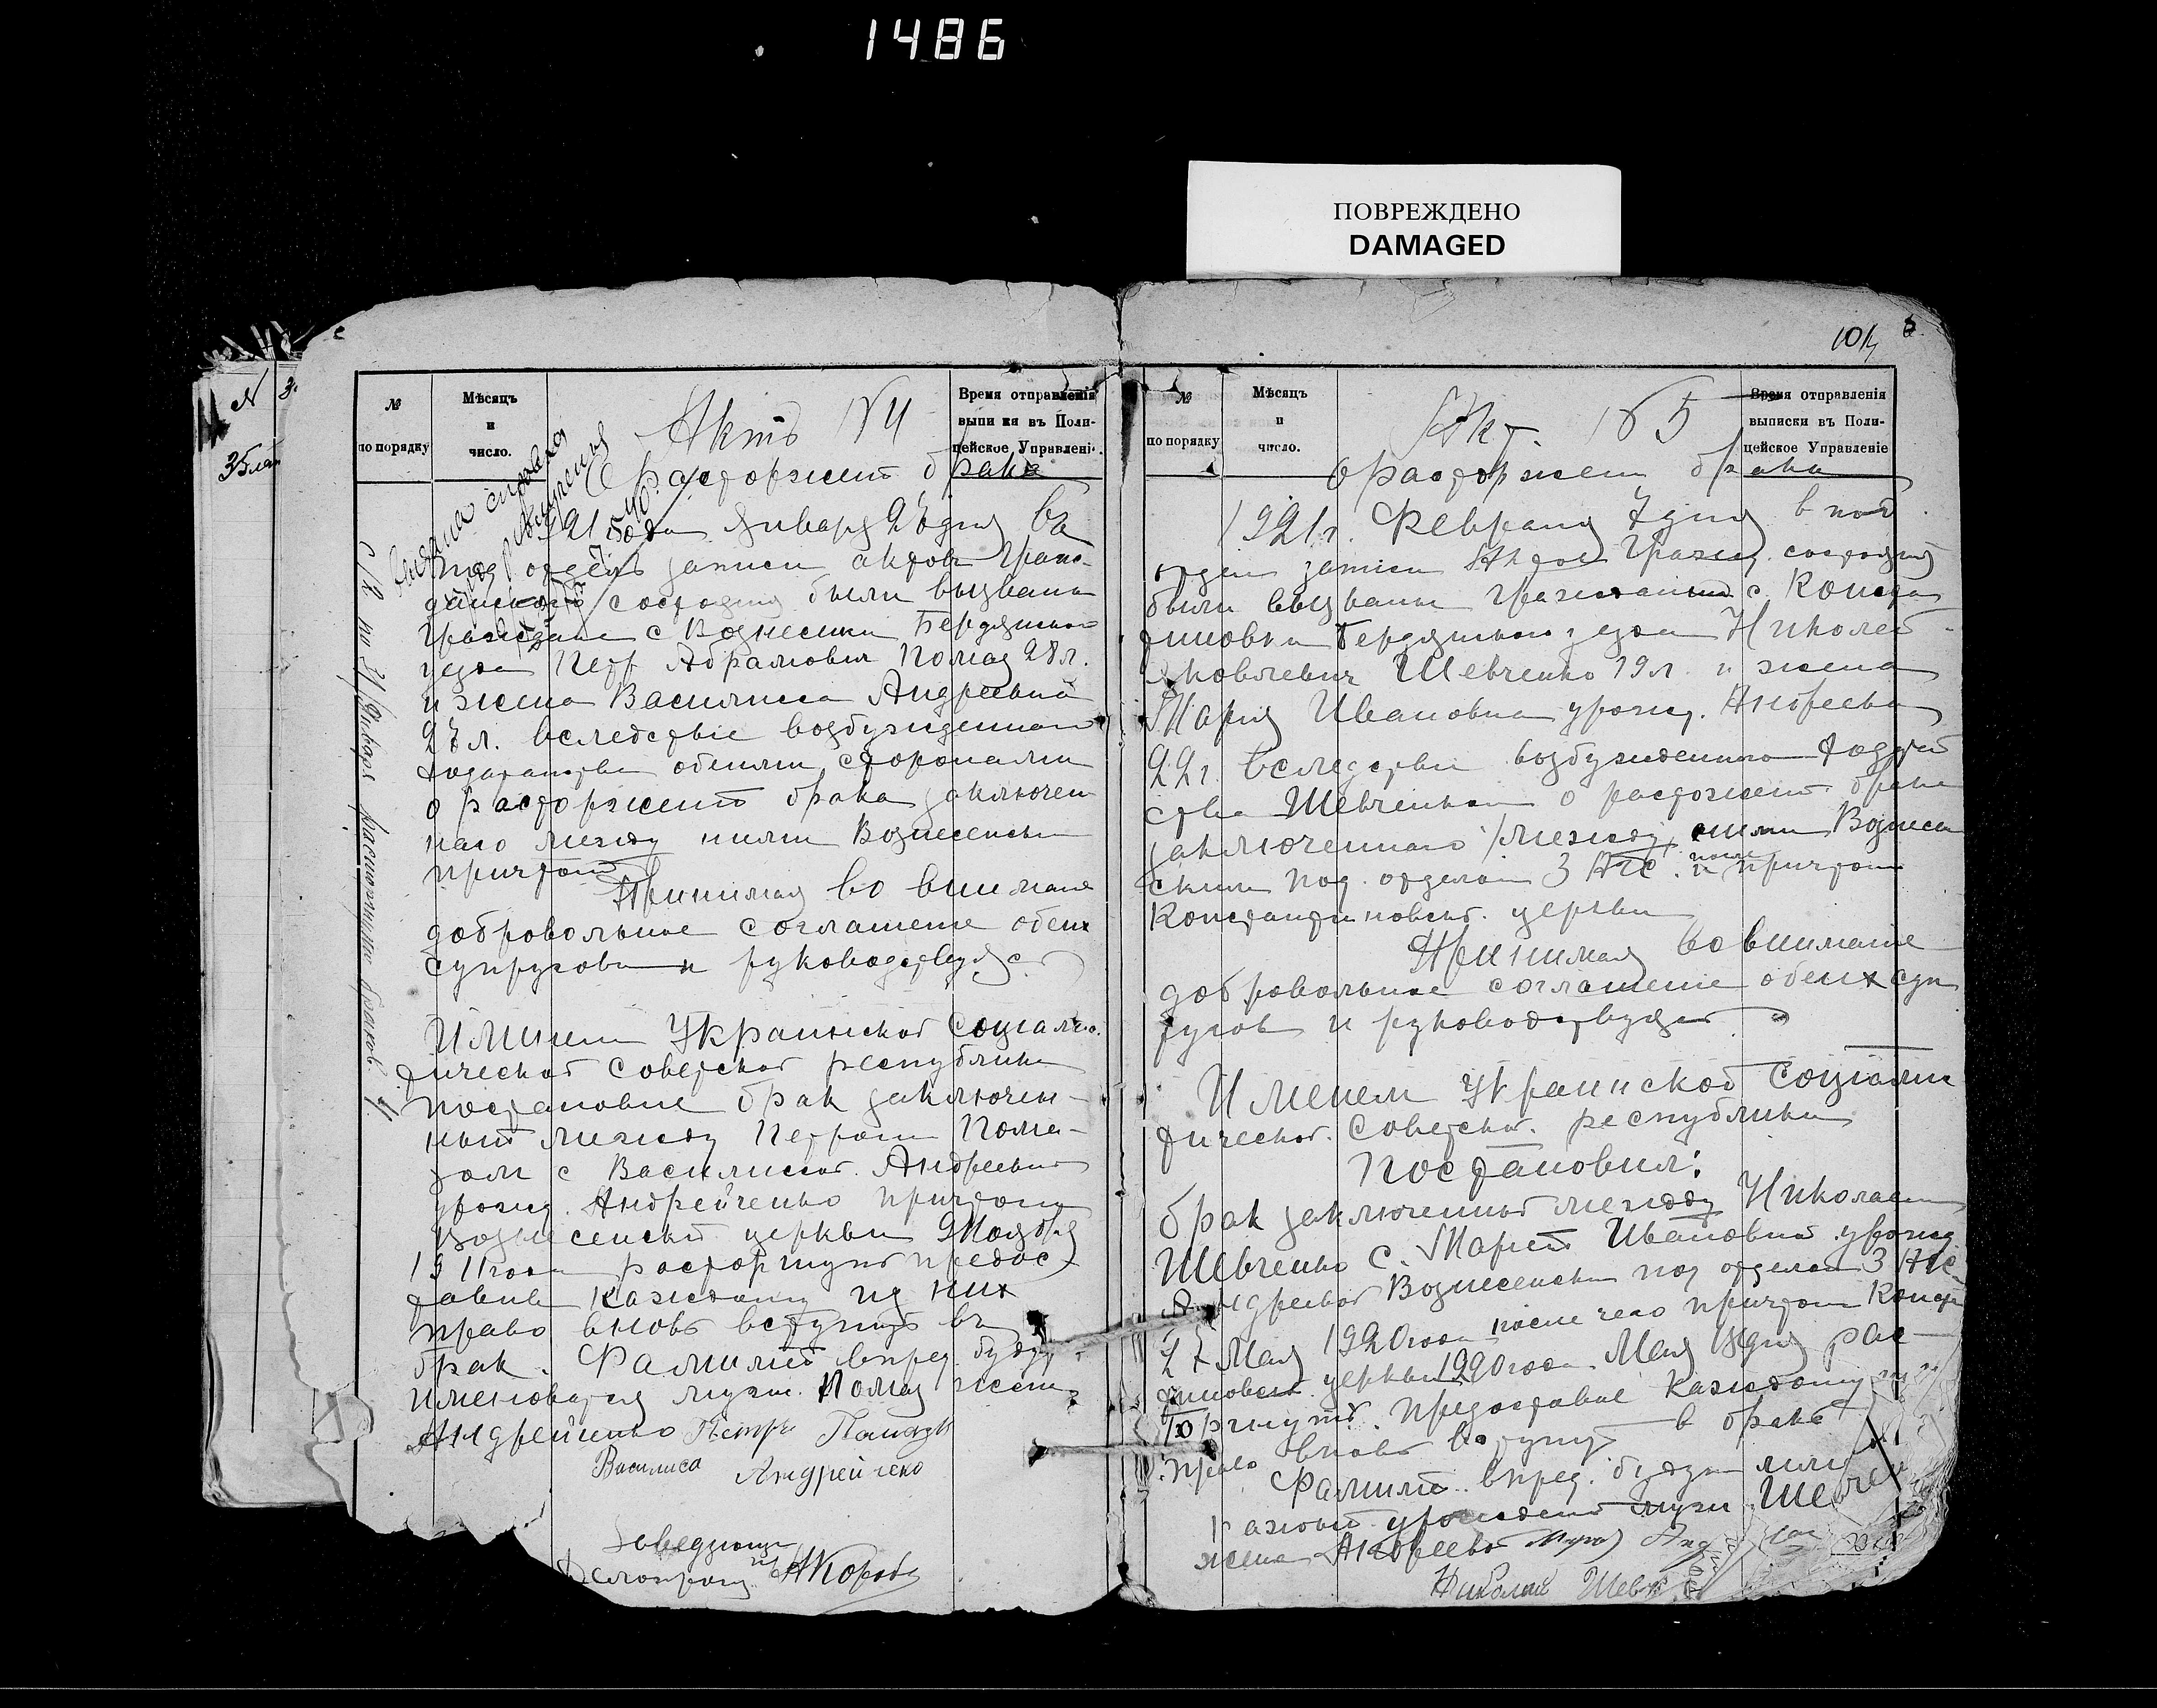 1486
ПОВРЕЖДЕНО
DAMAGED
104
№
35
№
по порядку
Мѣсяцъ
и
число.
Время отправленія
выписки въ Поли-
цейское Управленіе.
Актъ № 4
О расторжении брака
1921 года Января 28 дня въ
под отделъ записи актов Граж-
данского состояния были вызваны
граждане с Вознесенки Бердянского
уезда Петр Абрамович Помаз 28 л.
и жена Василиса Андреевна
28 л. вследствіе возбужденного
ходатайства обеими сторонами
о расторжении брака заключен
наго между ними Вознесенским
причтом
Принимая во внимание
добровольное соглашение обеих
супругов и руководствуясь
Именем Украинской Социалис-
тической Советской республики
постановил брак заключен-
ный между Петром Пома-
зом с Василисой Андреевной
урожд. Андрейченко причтом
Вознесенской церкви 9 Ноября
1911 года расторгнут предос
тавив каждому из них
право вновь вступить въ
брак. Фамилии впред будут
именоватся муж. Помаз жена
Андрейченко Петръ Памазъ
Василиса Андрейченко
Заведующий
Делопроиз.
с/к по 31 Января расторжении браков 4
№
по порядку
Мѣсяцъ
и
число.
Время отправленія
выписки въ Поли-
цейское Управленіе
Акт. № 5
О расторжении брака
1921 г. Февраля 7 дня в под
отдел записи Актов Гражд. состояния
были вызваны граждане с. Констан
тиновки Бердянского уезда Николай
Яковлевич Шевченко 19 л. и жена
Мария Ивановна урожд. Андреева
22 г. вследствие возбужденного ходатай
ства Шевченком о расторжении брака
заключенного между ними Вознесен
ским под. отделом З АГС. и после причтом
Константиновской. церкви
Принимая во внимание
добровольное соглашение обеих суп
ругов и руководствуясь
Именем Украинской Социалис
тической. Советской. республики
Постановил:
брак заключенный между Николаем
Шевченко с. Марией Ивановной урожд
Андреевой Вознесенским под отделом З АГС
27 Мая 1920 года после чего причтом Конста
тиновской церкви 1920 года Мая дня рас-
торгнут. Предоставив каждому
право вновь вступить в брак
Фамилии впред. будут
муж Шевче
жена Андреевой
Николай Шевч